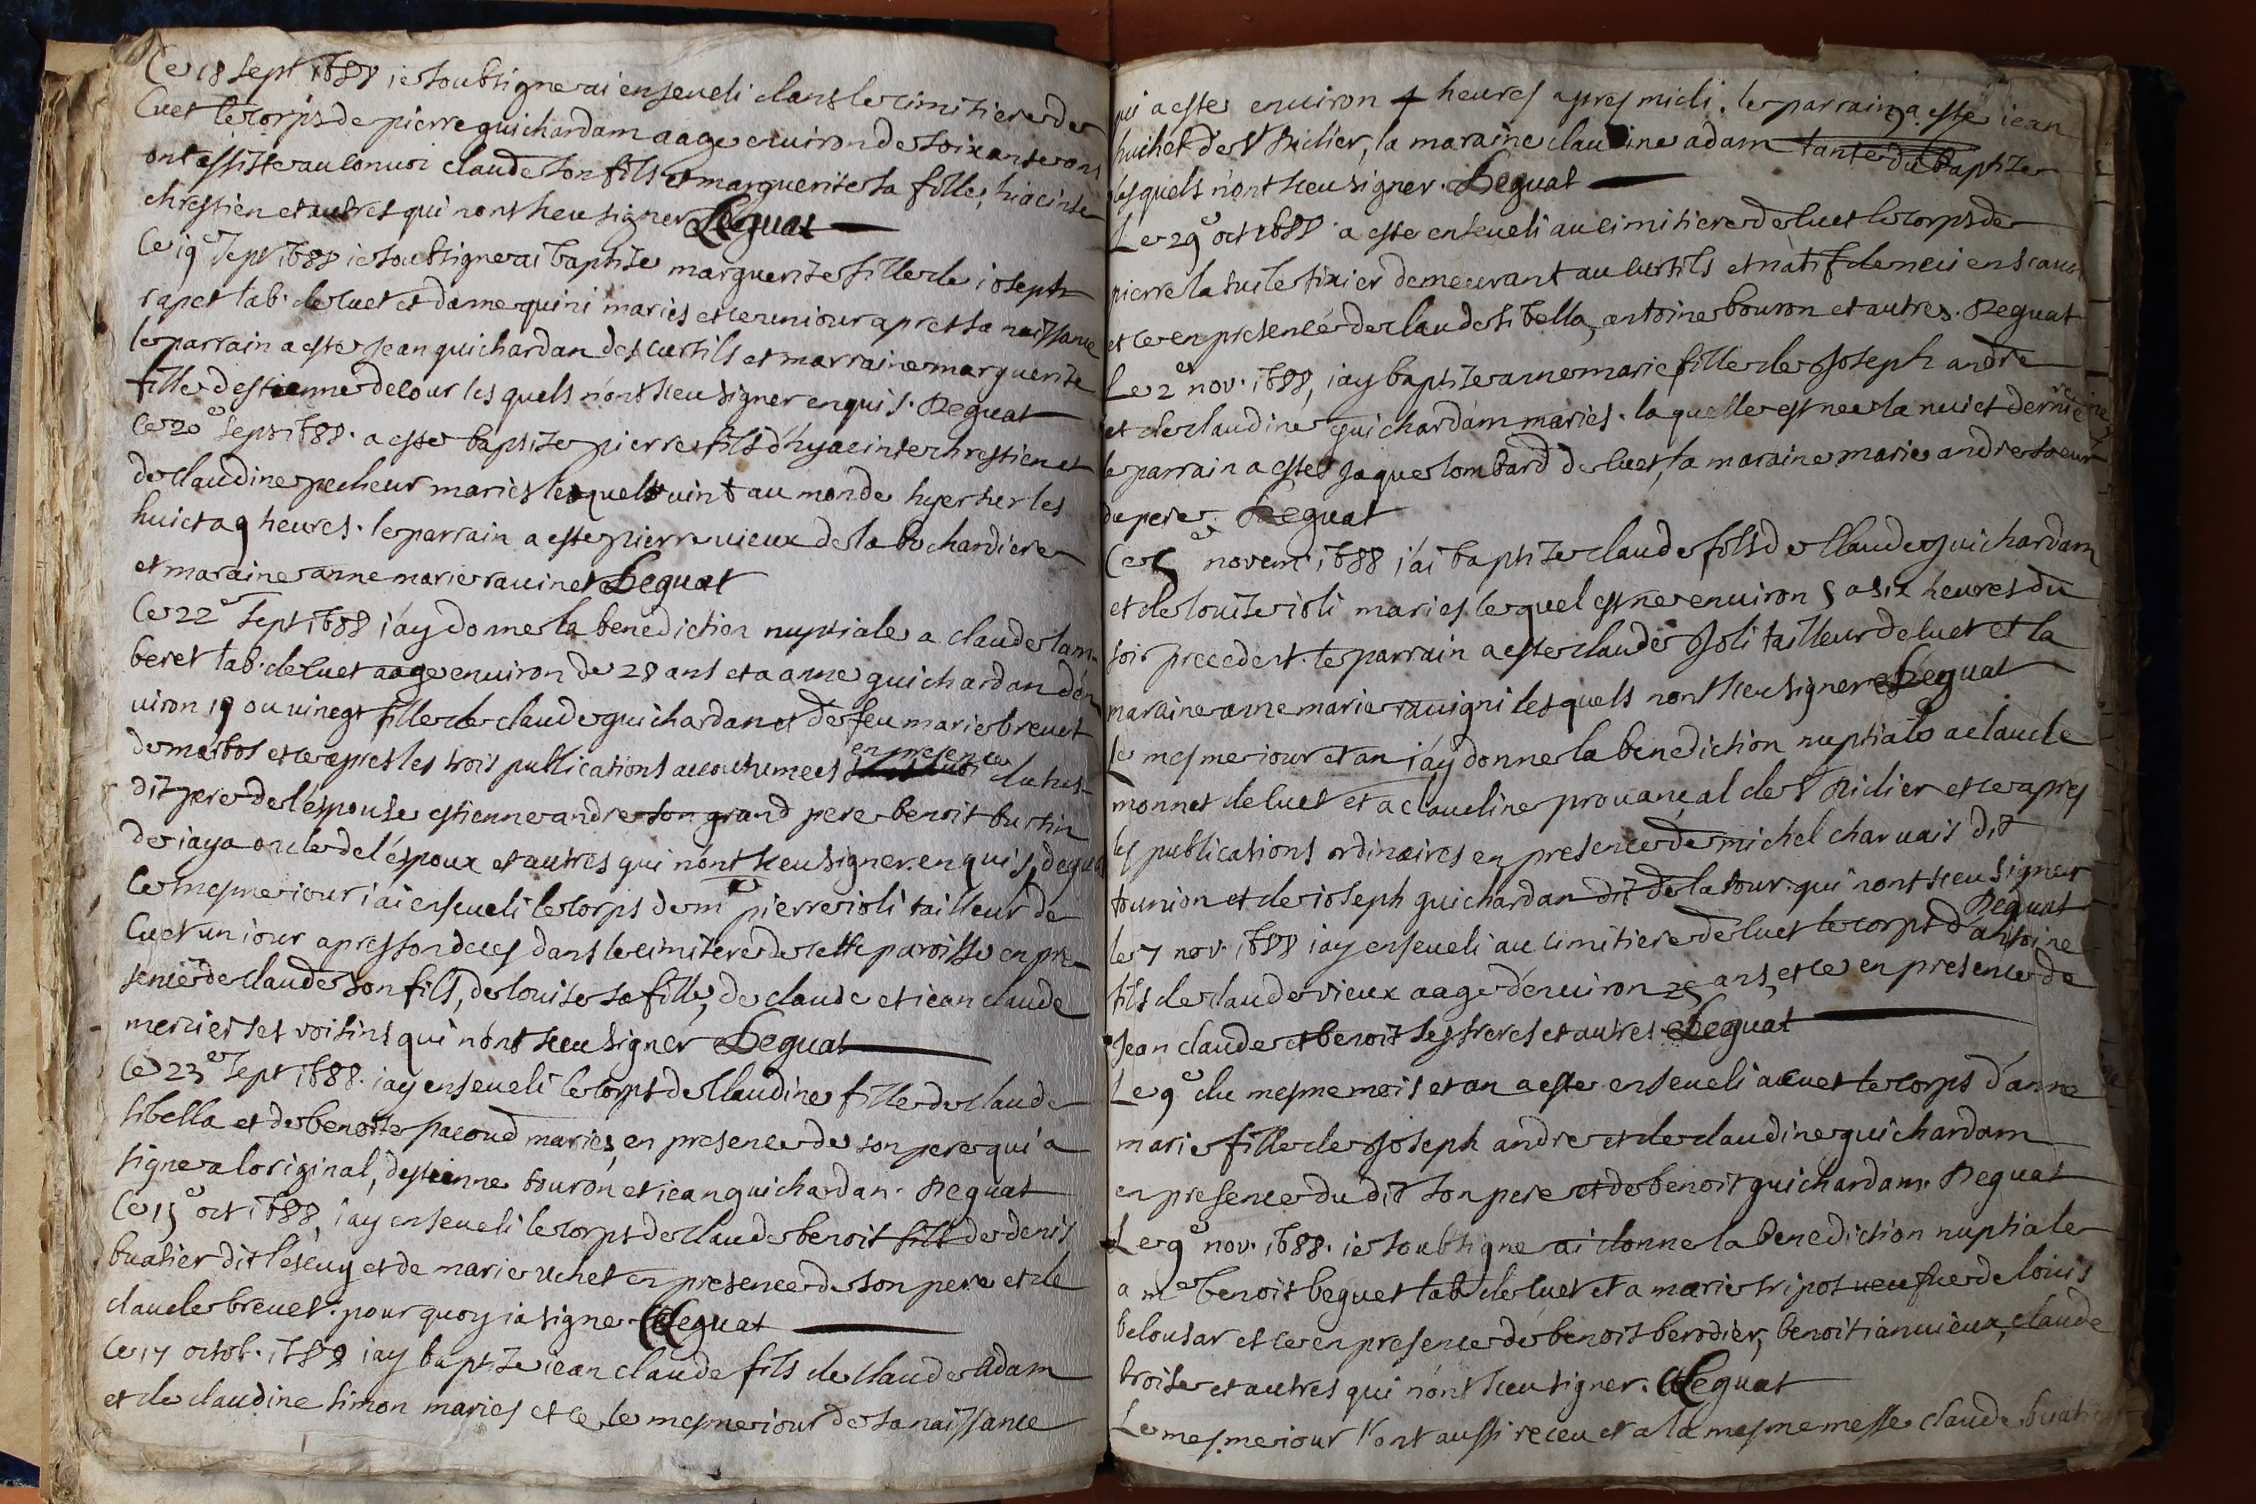 Ce 18 sept 1688 ie soubsigne ai enseveli dans le cimitiere de
luet le corps de pierre guichardam aage environ de soixante ans
ont assiste au convoi claude son fils et marguerite sa fille, hiacinte
chrestien et autres qui nont sceu signer Deguat
Ce 19e sept 1688 ie soubsigne ai baptize marguerite fille de ioseph
rapet lab. de luet et dame quini mariés et ce un iour apres sa naissance
le parrain a este Jean guichardan des curtils et marraine marguerite
fille destienne delour les quels n'ont sceu signer enquis. Deguat
Ce 20e sept 1688. a este baptize pierre fils d'hyacinte chrestien et
de claudine pecheur mariés lequel vint au monde hyer sur les
huict a 9 heures. le parrain a este pierre vieux de la bochardiere
et maraine anne marie ravinet Deguat
Ce 22e sept 1688 i'ay donne la benediction nuptiale a claude lam-
beret lab. de luet aage environ de 28 ans et a anne guichardan d'en
viron 19 ou vinegt fille de claude guichardan et de feu marie brevet
de marbos et ce apres les trois publications accoutumees en presence du sus-
dit pere de l'espouse estienne andre son grand pere benoit burtin
de iaya oncle de l'époux et autres qui n'ont sceu signer enquis, deguat
Ce mesme iour i'ai enseveli le corps de mre pierre ioli tailleur de
luet un iour apres son deces dans le cimitiere de cette paroisse en pre-
sence de claude son fils, de louise sa fille, de claude et iean claude
mercier ses voisins qui n'ont sceu signer Deguat
Ce 23e sept 1688. i'ay enseveli le corps de claudine fille de claude
sibella et de benoite pacoud mariés, en presence de son pere qui a
signe a loriginal, destienne bouron et iean guichardan. Deguat
Ce 15e oct 1688, i'ay enseveli le corps de claude benoit fils de denis
buatier dit leseuy et de marie vchet en presence de son pere et de
claude brevet. pour quoy ia signe. Deguat
Ce 17 octob. 1688 i'ay baptize iean claude fils de claude Adam
et de claudine simon mariés et ce le mesme iour de sa naissance
qui a este environ 4 heures apres midi. le parrain a este iean
huchet de St Didier, la maraine claudine adam tante du baptize
lesquels n'ont sceu signer. Deguat
Le 29e oct 1688 a este enseveli au cimitiere de luet le corps de
pierre la tuile tixier demeurant au curtils et natif de
et ce en presence de claude sibella, antoine bouron et autres. Deguat
Le 2e nov. 1688, i'ay baptize anne marie fille de Joseph andre
et de claudine guichardam mariés. laquelle est nee la nuict derniere
le parrain a este Jaque lombard de luet, la maraine marie andre soeur
du pere. Deguat
Ce 5e novem. 1688 i'ai baptize claude fils de claude guichardam
et de louise ioli mariés lequel est ne environ 5 a six heures du
soir precedent. le parrain a este claude Joli tailleur de luet et la
maraine anne marie ravigni lesquels nont sceu signer Deguat
le mesme iour et an i'ay donne la benediction nuptiale a claude
monnet de luet et a claudine provançal de St Didier et ce apres
les publications ordinaires en presence de michel charvais dit
tounion et de ioseph guichardan dit de la tour. qui nont sceu signer
Deguat
le 7 nov. 1688 i'ay enseveli au cimitiere de luet le corps d'antoine
fils de claude vieux aage d'environ 25 ans, et ce en presence de
Jean claude et benoit ses freres et autres Deguat
Le 9e du mesme mois et an a este enseveli a luet le corps d'anne
marie fille de Joseph andre et de claudine guichardam
en presence du dit son pere et de benoit guichardam. Deguat
Le 9e nov. 1688. ie soubsigne ai donne la benediction nuptiale
a mre benoit beguet lab de luet et a marie tripot veufve de louis
belousar et ce en presence de benoit berodier, benoit ianvieux, claude
broise et autres qui n'ont sceu signer. Deguat
Le mesme iour l'ont aussi receu et a la mesme messe claude buatier